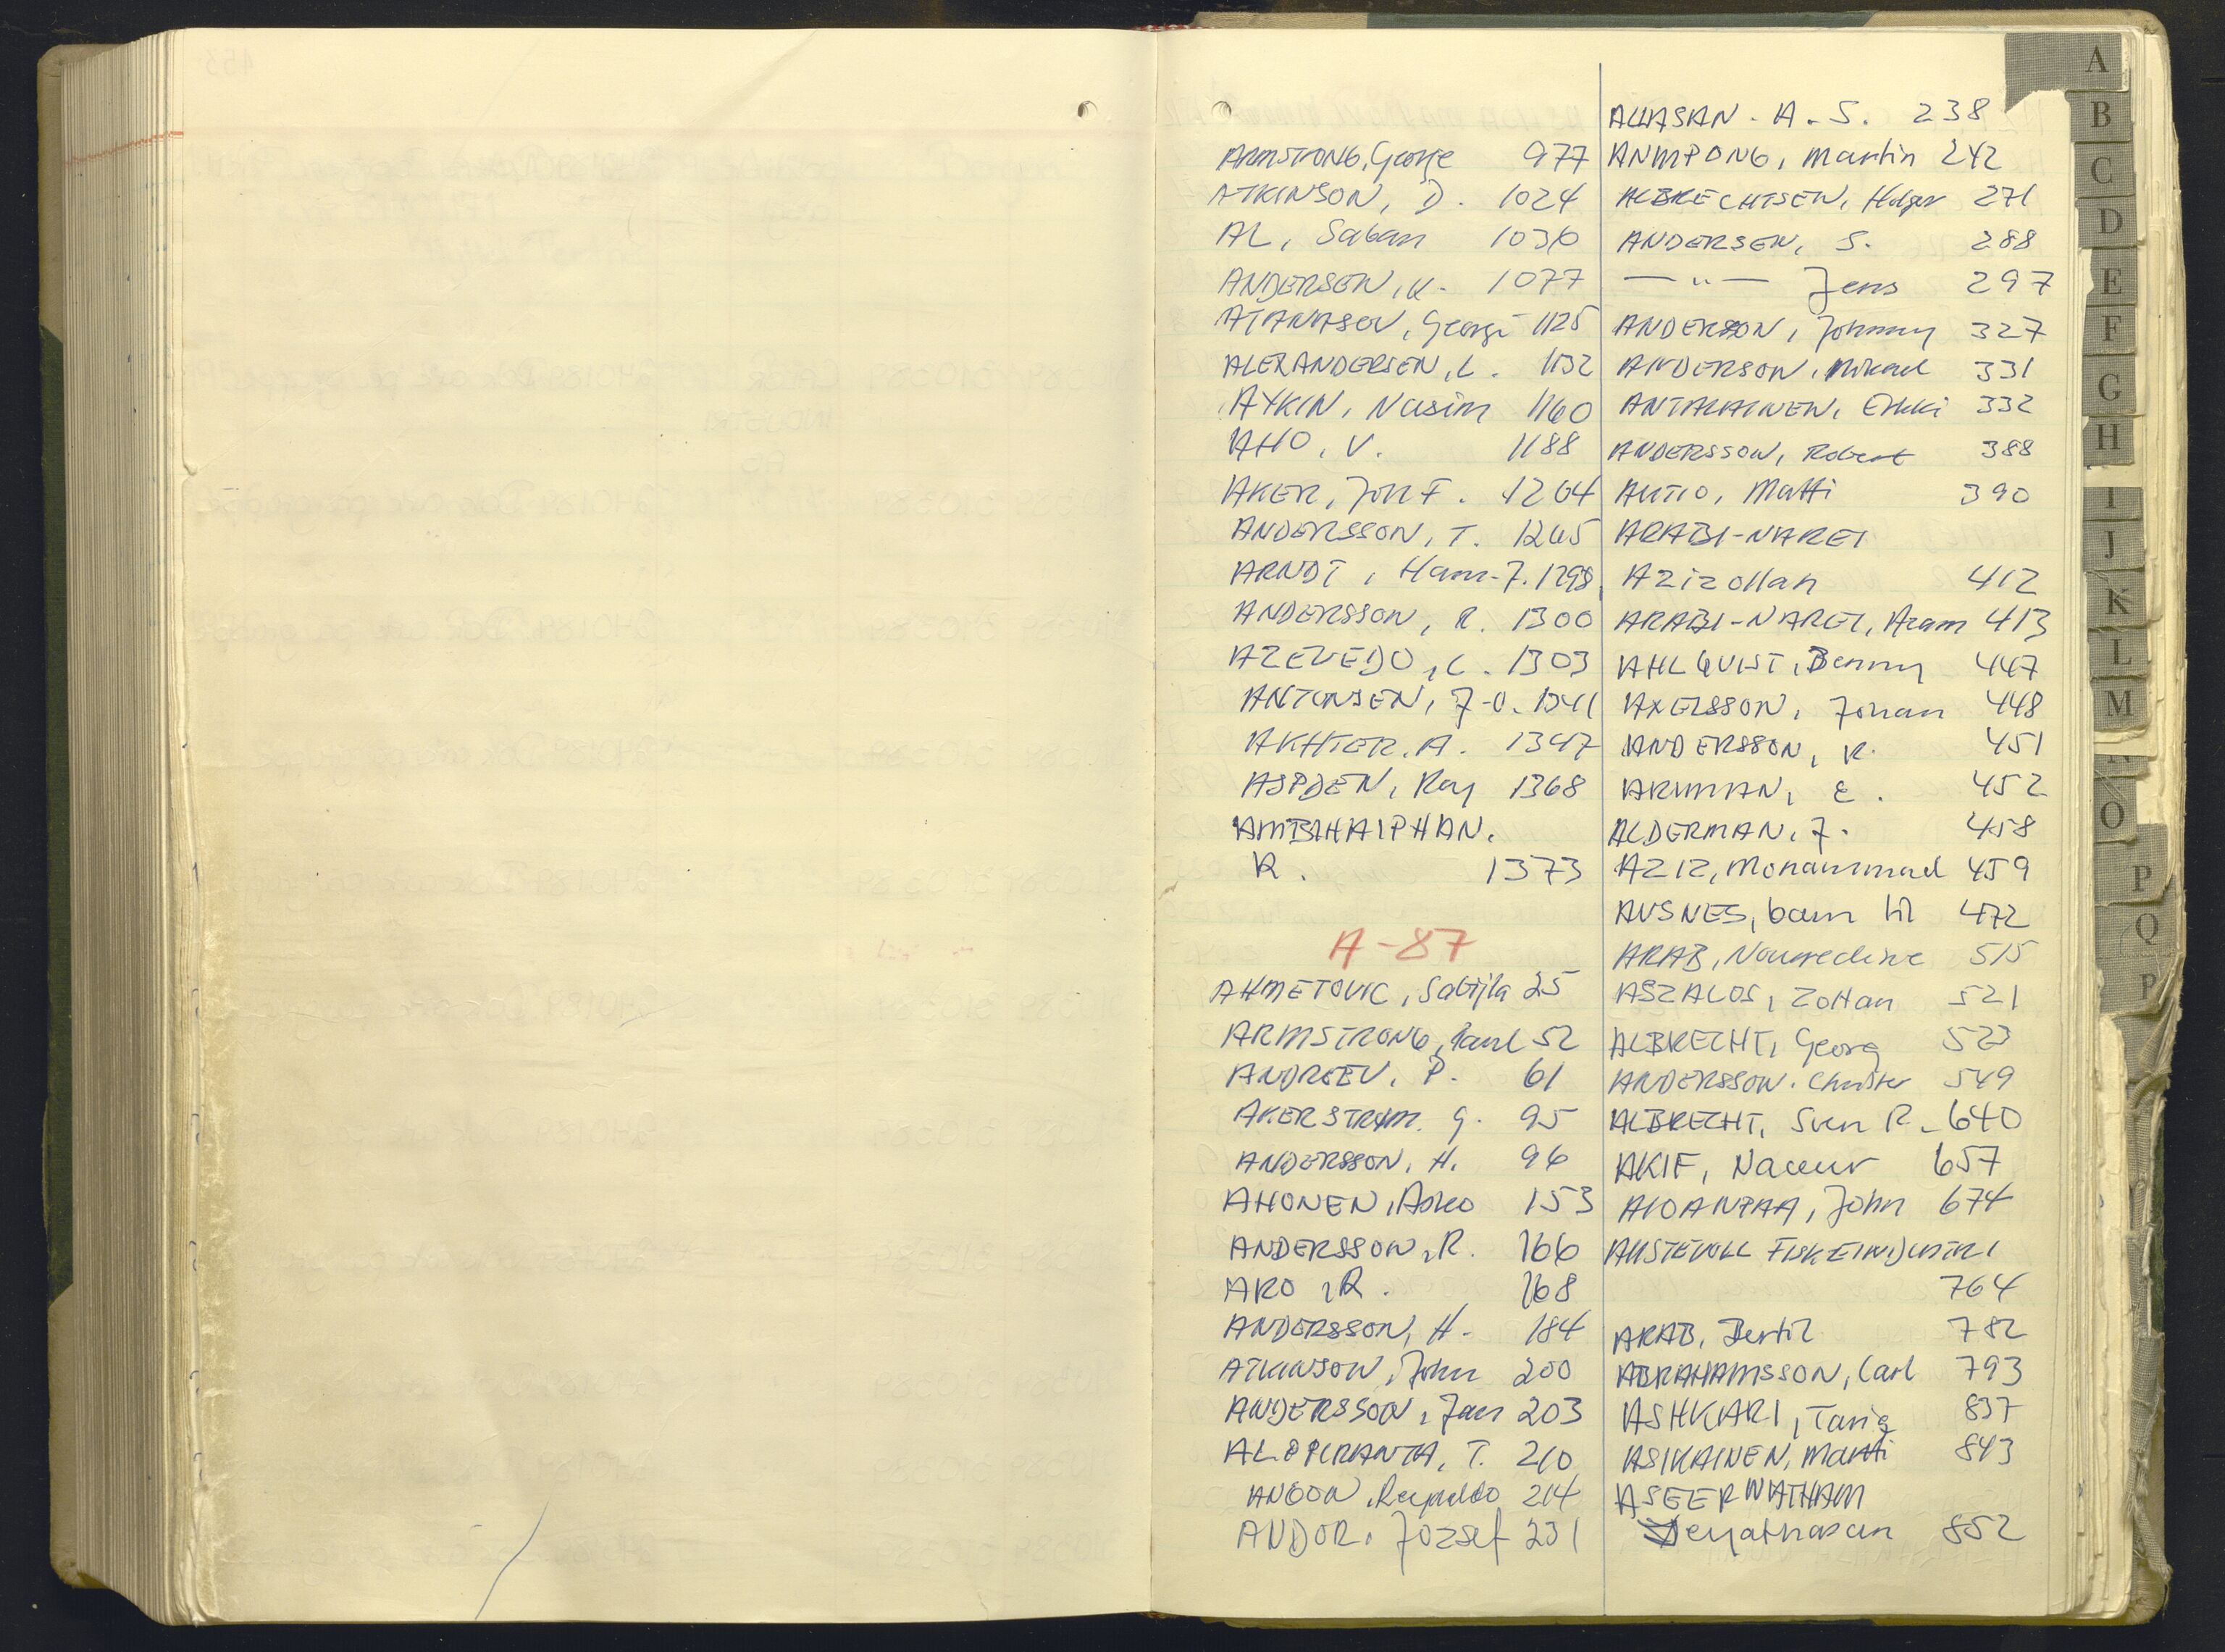 ARMSTRONG, George 977
ATKINSON, D. 1024
AL, Saban 1036
ANDERSEN, K. 1077
ATANASOV, Georgi 1125
ALEXANDERSEN, L. 1132
AYKIN, Nasim 1160
AHO, V. 1188
AKER, Jon F. 1204
ANDERSSON, T. 1265
ARNDT, Hans-J. 1298
ANDERSSON, R. 1300
AZEVEDO, C. 1303
ANTONSEN, J-O. 1341
AKHTER. A. 1347
ASPDEN, Ray 1368
AMBIHAIPHAN.
R. 1373
A-87
AHMETOVIC, Sabijla 25
ARMSTRONG, Paul 52
ANDREEV, P. 61
AKERSTRØM. G. 95
ANDERSSON, H. 96
AHONEN, Asko 153
ANDERSSON, R. 166
ARO, R. 168
ANDERSSON, H. 184
ATKINSON, John 200
ANDERSSON, Jan 203
ALOPURANTA, T. 210
214
ANDOR, Jozsef 231
ALHASAN. A.S. 238
ANMPONG, Martin 242
ALBRECHTSEN, Holger 271
ANDERSEN, S. 288
— " — Jens 297
ANDERSON, Johnny 327
ANDERSON, Mikael 331
ANTALAINEN, Erkki 332
ANDERSSON, Robert 388
AUTIO, Matti 390
ARABI-NAREI
Azizollah 412
ARABI-NAREI, Azam 413
AHLQUIST, Benny 447
AXELSSON, Johan 448
ANDERSSON, K. 451
ARMMAN, E. 452
ALDERMAN, J. 458
AZIZ, Mohammad 459
AUSNES, barn til 472
ARAB, Nourredine 515
ASZALOS, Zoltan 521
ALBRECHT, Georg 523
ANDERSSON. Christer 549
ALBRECHT, Sven R. 640
AKIF, Naceur 657
AIOANPAA, John 674
AUSTEVOLL FISKEINDUSTRI
764
ARAB, Bertil 782
ABRAHAMSSON, Carl 793
ASHKARI, Tariq 837
ASIKAINEN, Martti 843
ASEERWATHAM
Deyathasan 852
A
B
C
D
E
F
G
H
I
J
K
L
M
O
P
Q